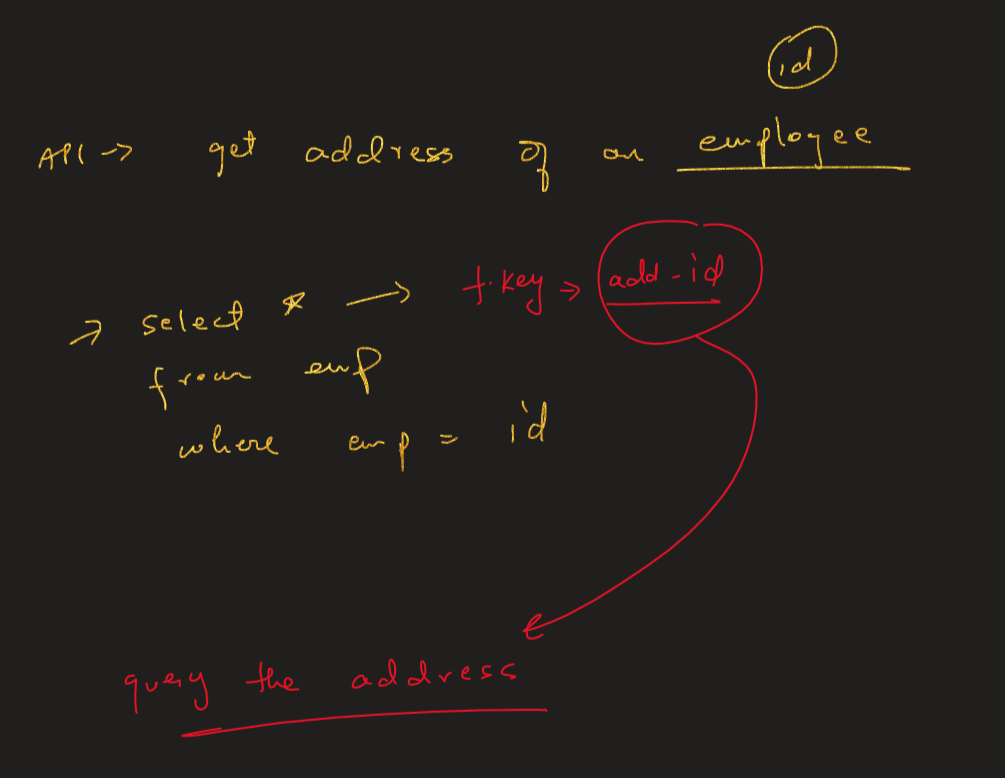 id
API -> get address of an employee
-> select * -> f.key -> add-id
from emp
where emp = id
query the address